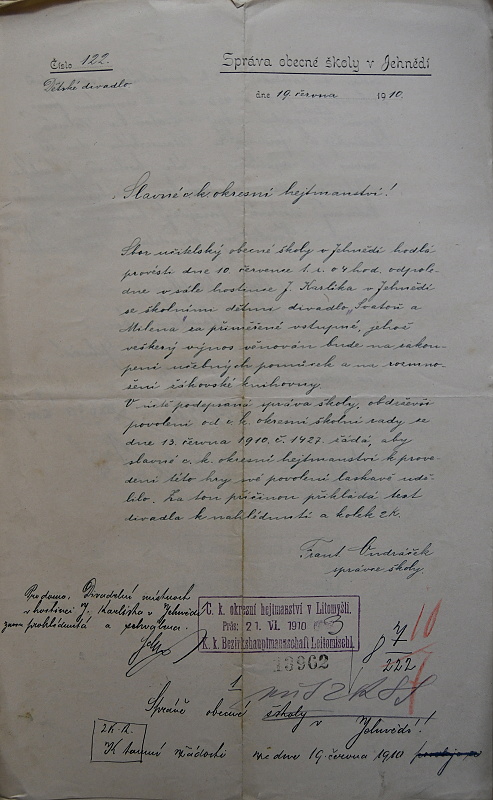 Číslo 122.
Správa obecné školy v Jehnědí
Dětské divadlo
dne 19. června 1910.
Slavné c. k. okresní hejtmanství!
Sbor učitelský obecné školy v Jehnědí hodlá
provésti dne 10. července t. r. o 4 hod. odpole-
dne v sále hostince J. Karlíka v Jehnědí
se školními dětmi divadlo „Svatoň a
Milena" za přiměřené vstupné, jehož
veškerý výnos věnován bude na zakou-
pení učebných pomůcek a na rozmno-
žení žákovské knihovny.
V úctě podepsaná správa školy, obdrževši
povolení od c. k. okresní školní rady ze
dne 13. června 1910. č. 1427. žádá, aby
slavné c. k. okresní hejtmanství k prove-
dení této hry své povolení laskavě udě-
lilo. Za tou příčinou přikládá text
divadla k nahlédnutí a kolek 2K.
Frant. Ondráček
správce školy.
Pro domo. Divadelní místnost
v hostinci J. Karlíka v Jehnědí
C. k. okresní hejtmanství v Litomyšli.
Präs: 21. VI. 1910
K. k. Bezirkshauptmannschaft Leitomischl.
13962
8 7/222
10
1
Správě obecné školy v Jehnědí!
K tamní žádosti ze dne 19. června 1910